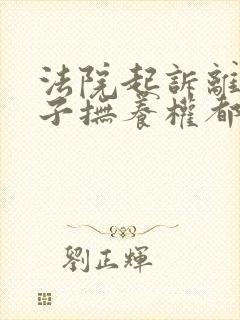 法院起訴離
子撫養權都
劉正輝